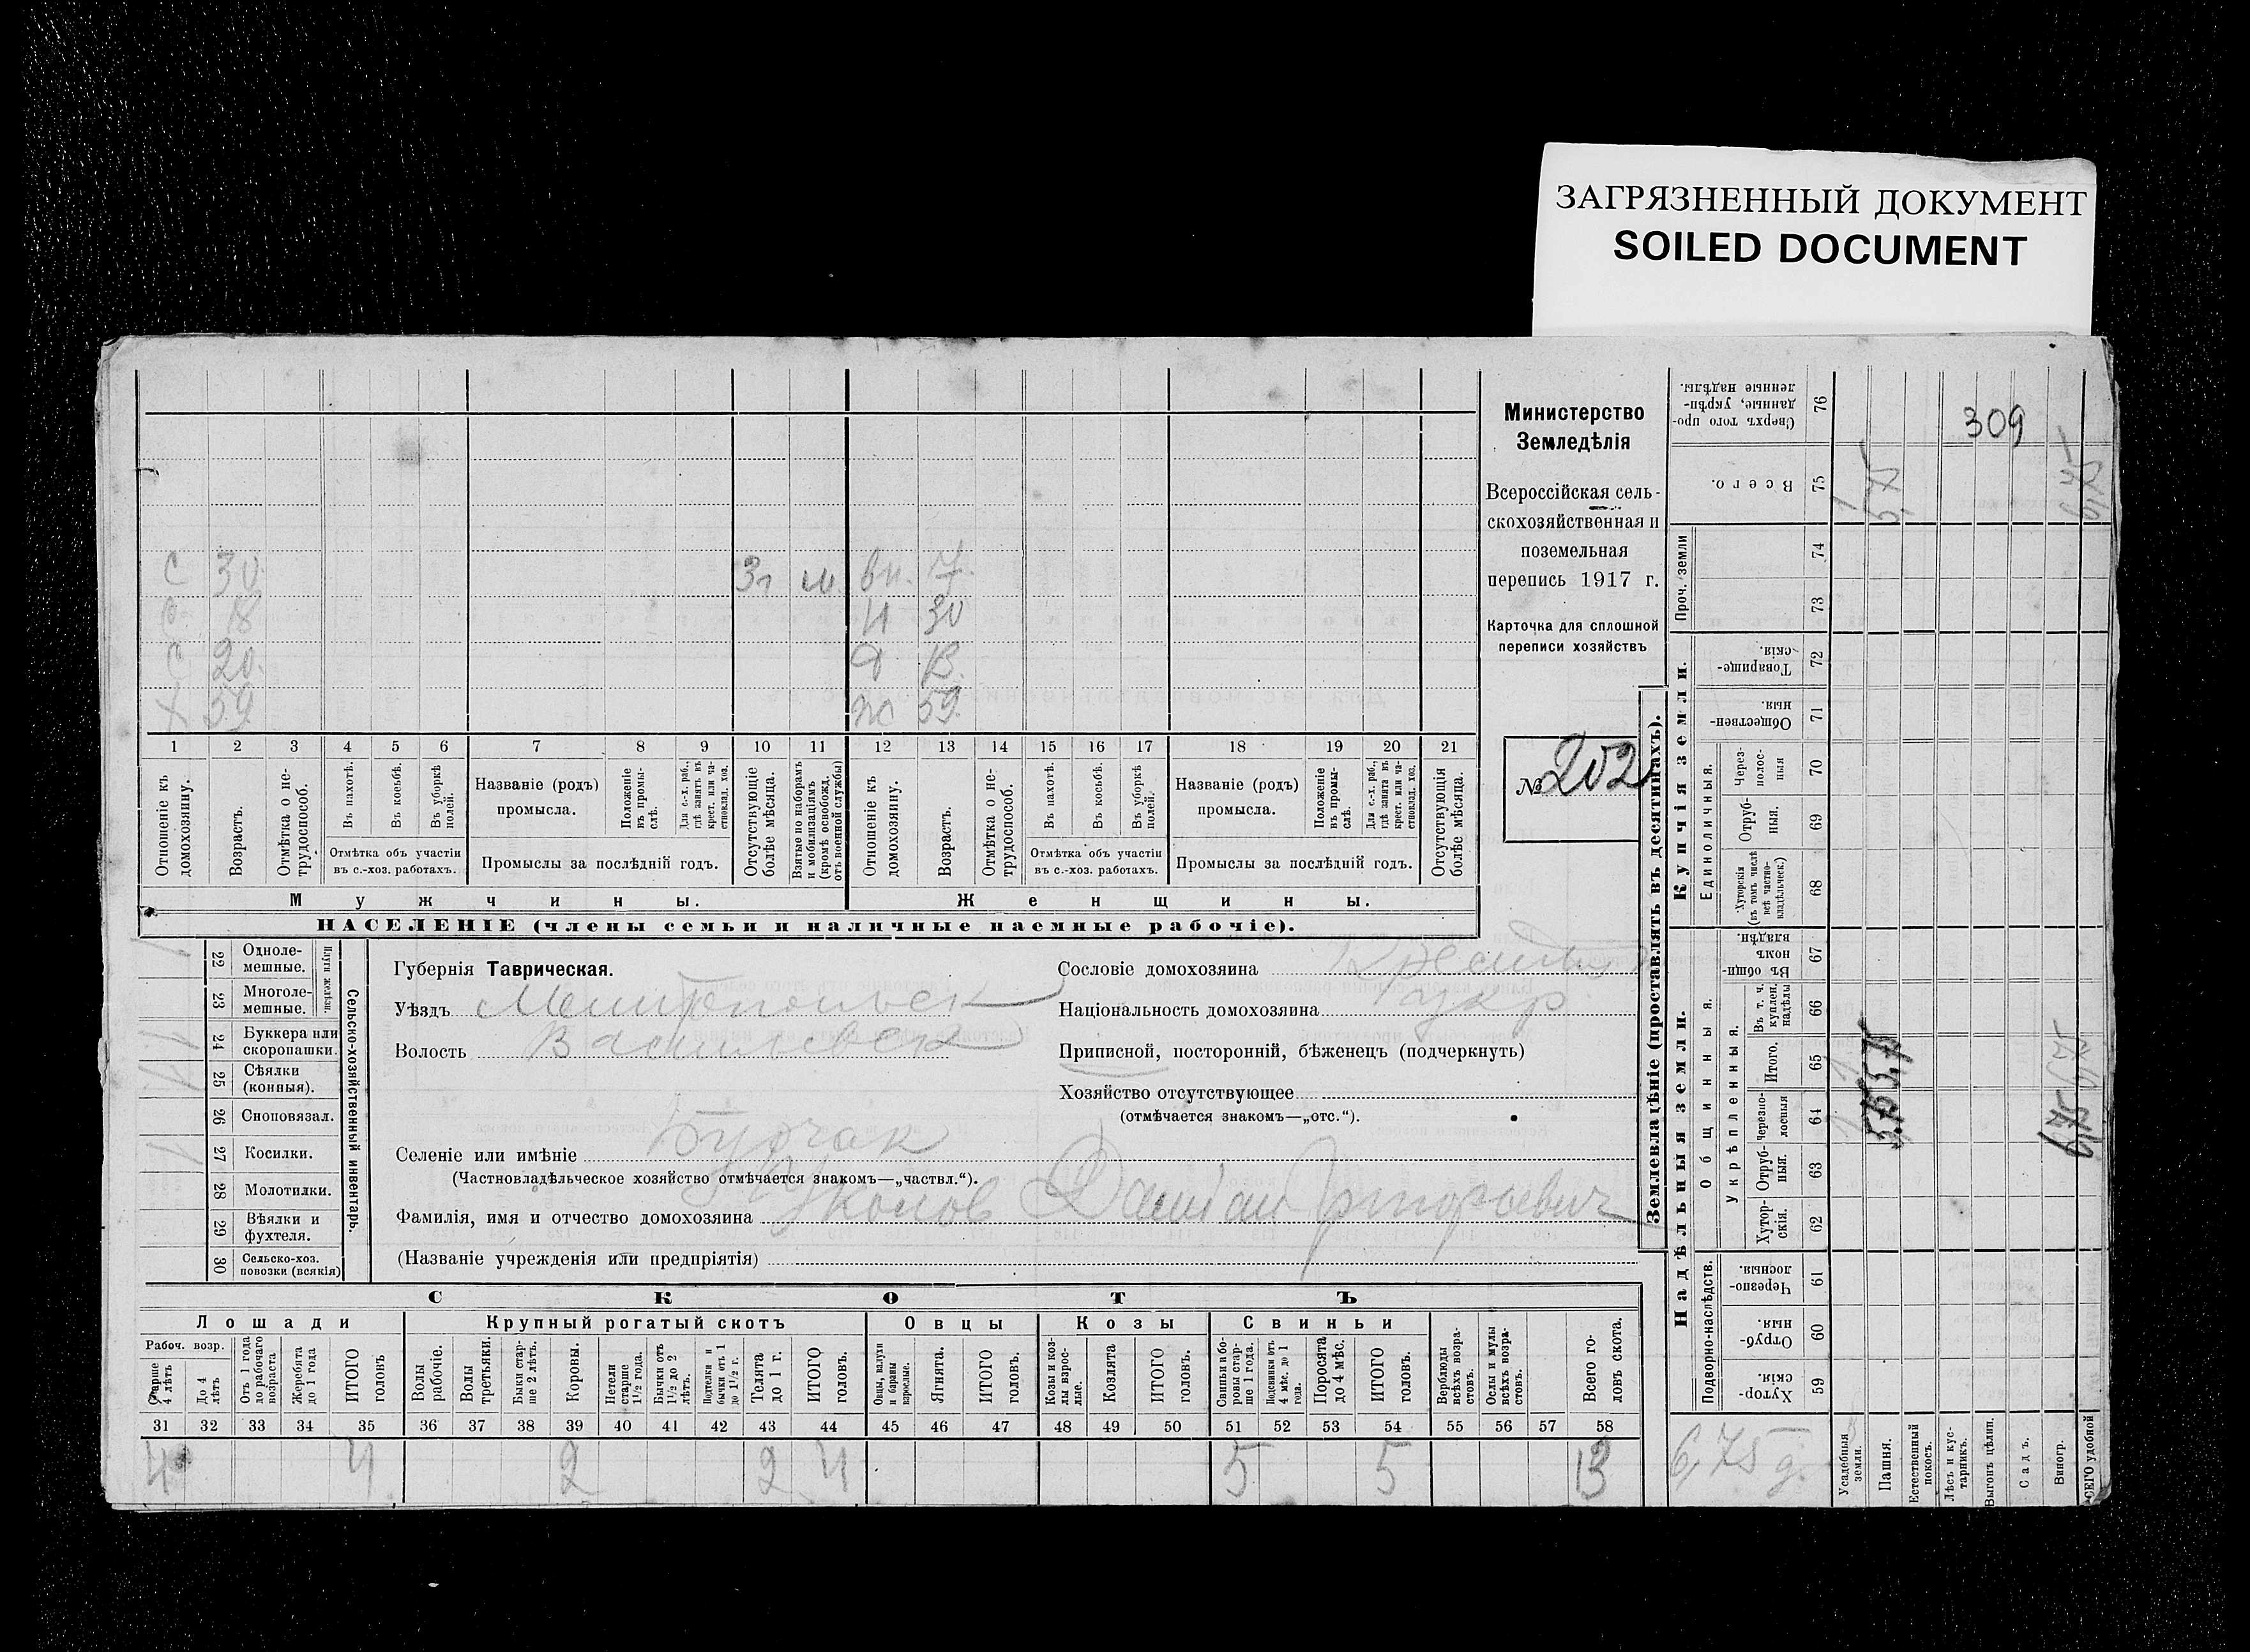 ЗАГРЯЗНЕННЫЙ ДОКУМЕНТ
SOILED DOCUMENT
309
С 30 3 г м. вн. 7.
С 18 Н 30
С 20. Д 13.
Х 59. Ж 59.
1 2 3 4 5 6 7 8 9 10 11 12 13 14 15 16 17 18 19 20 21
Отношеніе къ домохозяину.
Возрастъ.
Отмѣтка о нетрудоспособ.
Въ пахотѣ.
Въ косьбѣ.
Въ уборкѣ полей.
Отмѣтка объ участіи
въ с.-хоз. работахъ.
Названіе (родъ)
промысла.
Положеніе въ промыслѣ.
Для с.-х. раб., гдѣ занятъ въ крест. или частновлад. хоз.
Промыслы за послѣдній годъ.
Отсутствующіе болѣе мѣсяца.
Взятые по наборамъ и мобилизаціямъ (кромѣ освобожд. отъ военной службы)
Отношеніе къ домохозяину.
Возрастъ.
Отмѣтка о нетрудоспособ.
Въ пахотѣ.
Въ косьбѣ.
Въ уборкѣ полей.
Отмѣтка объ участіи
въ с.-хоз. работахъ.
Названіе (родъ)
промысла.
Положеніе въ промыслѣ.
Для с.-х. раб., гдѣ занятъ въ крест. или частновлад. хоз.
Промыслы за послѣдній годъ.
Отсутствующія болѣе мѣсяца.
Мужчины.
Женщины.
НАСЕЛЕНІЕ (члены семьи и наличные наемные рабочіе).
Министерство
Земледѣлія
Всероссійская сель-
скохозяйственная и
поземельная
перепись 1917 г.
Карточка для сплошной
переписи хозяйствъ
№ 202
Сельско-хозяйственный инвентарь.
Плуги желѣзн.
22 Однолемешные.
23 Многолемешные.
24 Буккера или скоропашки.
25 Сѣялки (конныя).
26 Сноповязал.
27 Косилки.
28 Молотилки.
29 Вѣялки и фухтеля.
30 Сельско-хоз. повозки (всякія)
Губернія Таврическая.
Уѣздъ Мелитопольск
Волость Васильевск
Селеніе или имѣніе Бурчак
(Частновладѣльческое хозяйство отмѣчается знакомъ—„частвл.“).
Фамилія, имя и отчество домохозяина Григорьевич
(Названіе учрежденія или предпріятія)
Сословіе домохозяина
Національность домохозяина укр.
Приписной, посторонній, бѣженецъ (подчеркнуть)
Хозяйство отсутствующее
(отмѣчается знакомъ—„отс.“).
СКОТЪ
Лошади
Крупный рогатый скотъ
Овцы
Козы
Свиньи
Рабоч. возр.
Старше 4 лѣтъ
До 4 лѣтъ
Отъ 1 года до рабочаго возраста
Жеребята до 1 года
ИТОГО головъ
Волы рабочіе.
Волы третьяки.
Быки старше 2 лѣтъ.
Коровы.
Нетели старше 1½ года.
Бычки отъ 1½ до 2 лѣтъ.
Подтелки и бычки отъ 1 до 1½ г.
Телята до 1 г.
ИТОГО головъ.
Овцы, валухи и бараны взрослые.
Ягнята.
ИТОГО головъ.
Козы и козлы взрослые.
Козлята
ИТОГО головъ.
Свиньи и боровы старше 1 года.
Подсвинки отъ 4 мѣс. до 1 года.
Поросята до 4 мѣс.
ИТОГО головъ.
Верблюды всѣхъ возрастовъ.
Ослы и мулы всѣхъ возрастовъ.
Всего головъ скота.
31 32 33 34 35 36 37 38 39 40 41 42 43 44 45 46 47 48 49 50 51 52 53 54 55 56 57 58
4 4 2 2 4 5 5 13
Землевладѣніе (проставлять въ десятинахъ).
Надѣльныя земли.
Купчія земли.
Проч. земли
Сверхъ того проданные, укрѣпленные надѣлы. 76
Всего. 75
74
73
Товарищескія. 72
Общественныя. 71
Единоличныя.
Черезполосныя 70
Отрубныя. 69
Хуторскія (въ томъ числѣ всѣ частновладѣльческ.) 68
Общинныя.
Въ общинномъ владѣн. 67
Укрѣпленныя.
Въ т. ч. куплен. надѣлы 66
Итого. 65
Черезполосныя 64
Отрубныя. 63
Хуторскія. 62
Подворно-наслѣдств.
Черезполосныя 61
Отрубныя. 60
Хуторскія. 59
1 5,75 6,75 6,75
5,75 6,75
6,75 д.
Усадебныя земли.
Пашня.
Естественный покосъ.
Лѣсъ и кустарникъ.
Выгонъ цѣлин.
Садъ.
Виногр.
ВСЕГО удобной